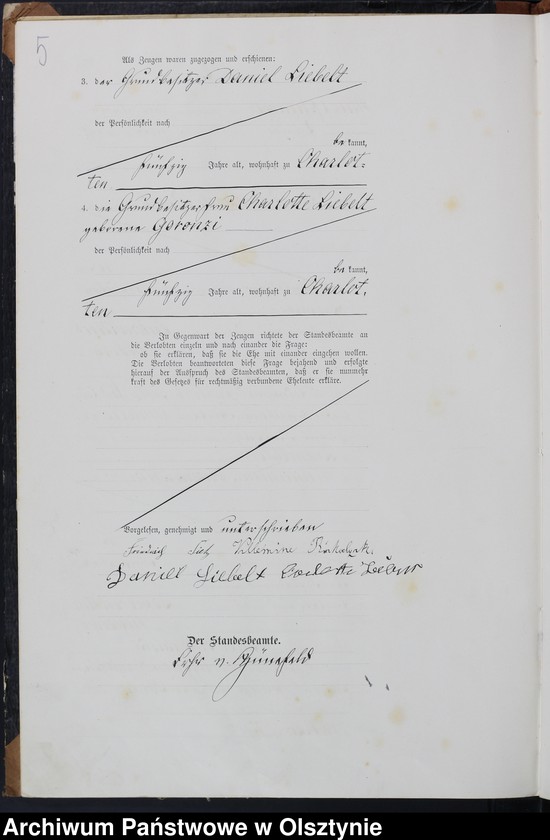 5
Als Zeugen waren zugezogen und erschienen:
3. der Grundbesitzer Daniel Liebelt
der Persönlichkeit nach
be kannt,
fünfzig Jahre alt, wohnhaft zu Charlot-
ten
4. die Grundbesitzerfrau Charlotte Liebelt
geborene Goronzi
der Persönlichkeit nach
be kannt,
fünfzig Jahre alt, wohnhaft zu Charlot-
ten
In Gegenwart der Zeugen richtete der Standesbeamte an
die Verlobten einzeln und nach einander die Frage:
ob sie erklären, daß sie die Ehe mit einander eingehen wollen.
Die Verlobten beantworteten diese Frage bejahend und erfolgte
hierauf der Ausspruch des Standesbeamten, daß er sie nunmehr
kraft des Gesetzes für rechtmäßig verbundene Eheleute erkläre.
Vorgelesen, genehmigt und unterschrieben
Friedrich
Daniel Liebelt
Der Standesbeamte.
Archiwum Państwowe w Olsztynie